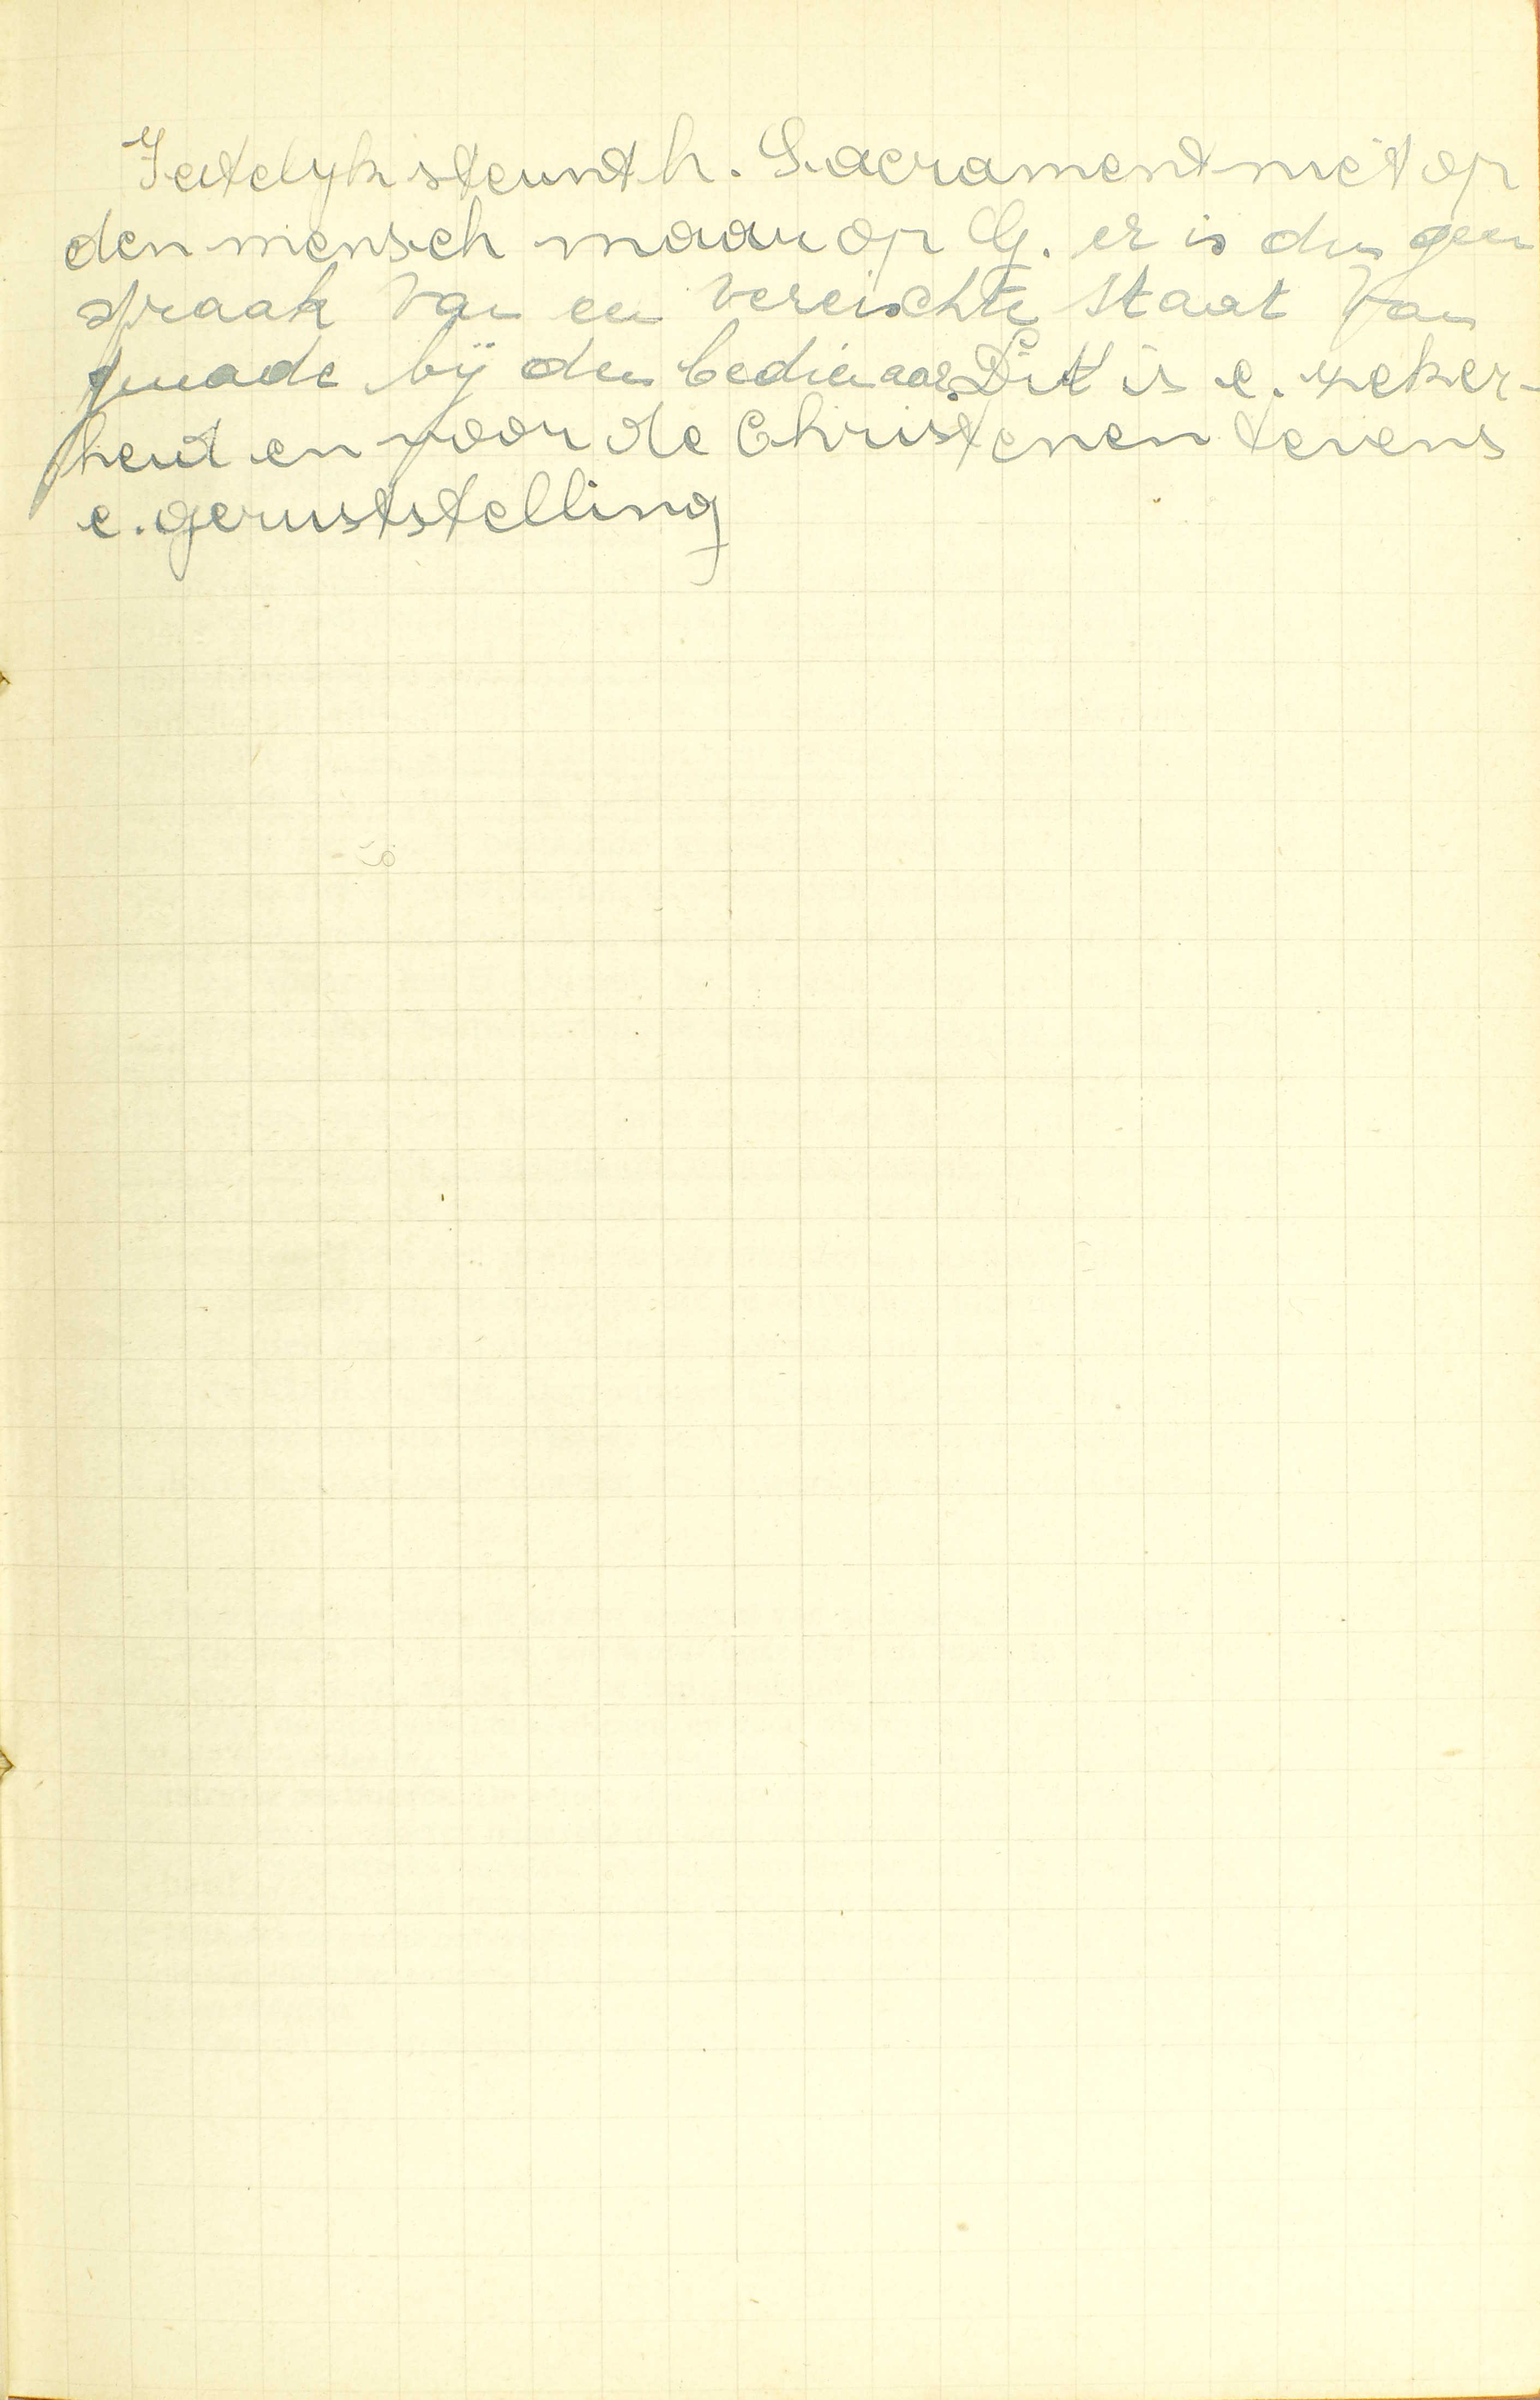 Feitelyk steunt h. Sacrament niet op
den mensch maar op G. er is dus geen
spraak van een vereischte staat van
genade bij den bedienaar. Dit is e. zeker-
heid en voor de Christenen tevens
e. geruststelling